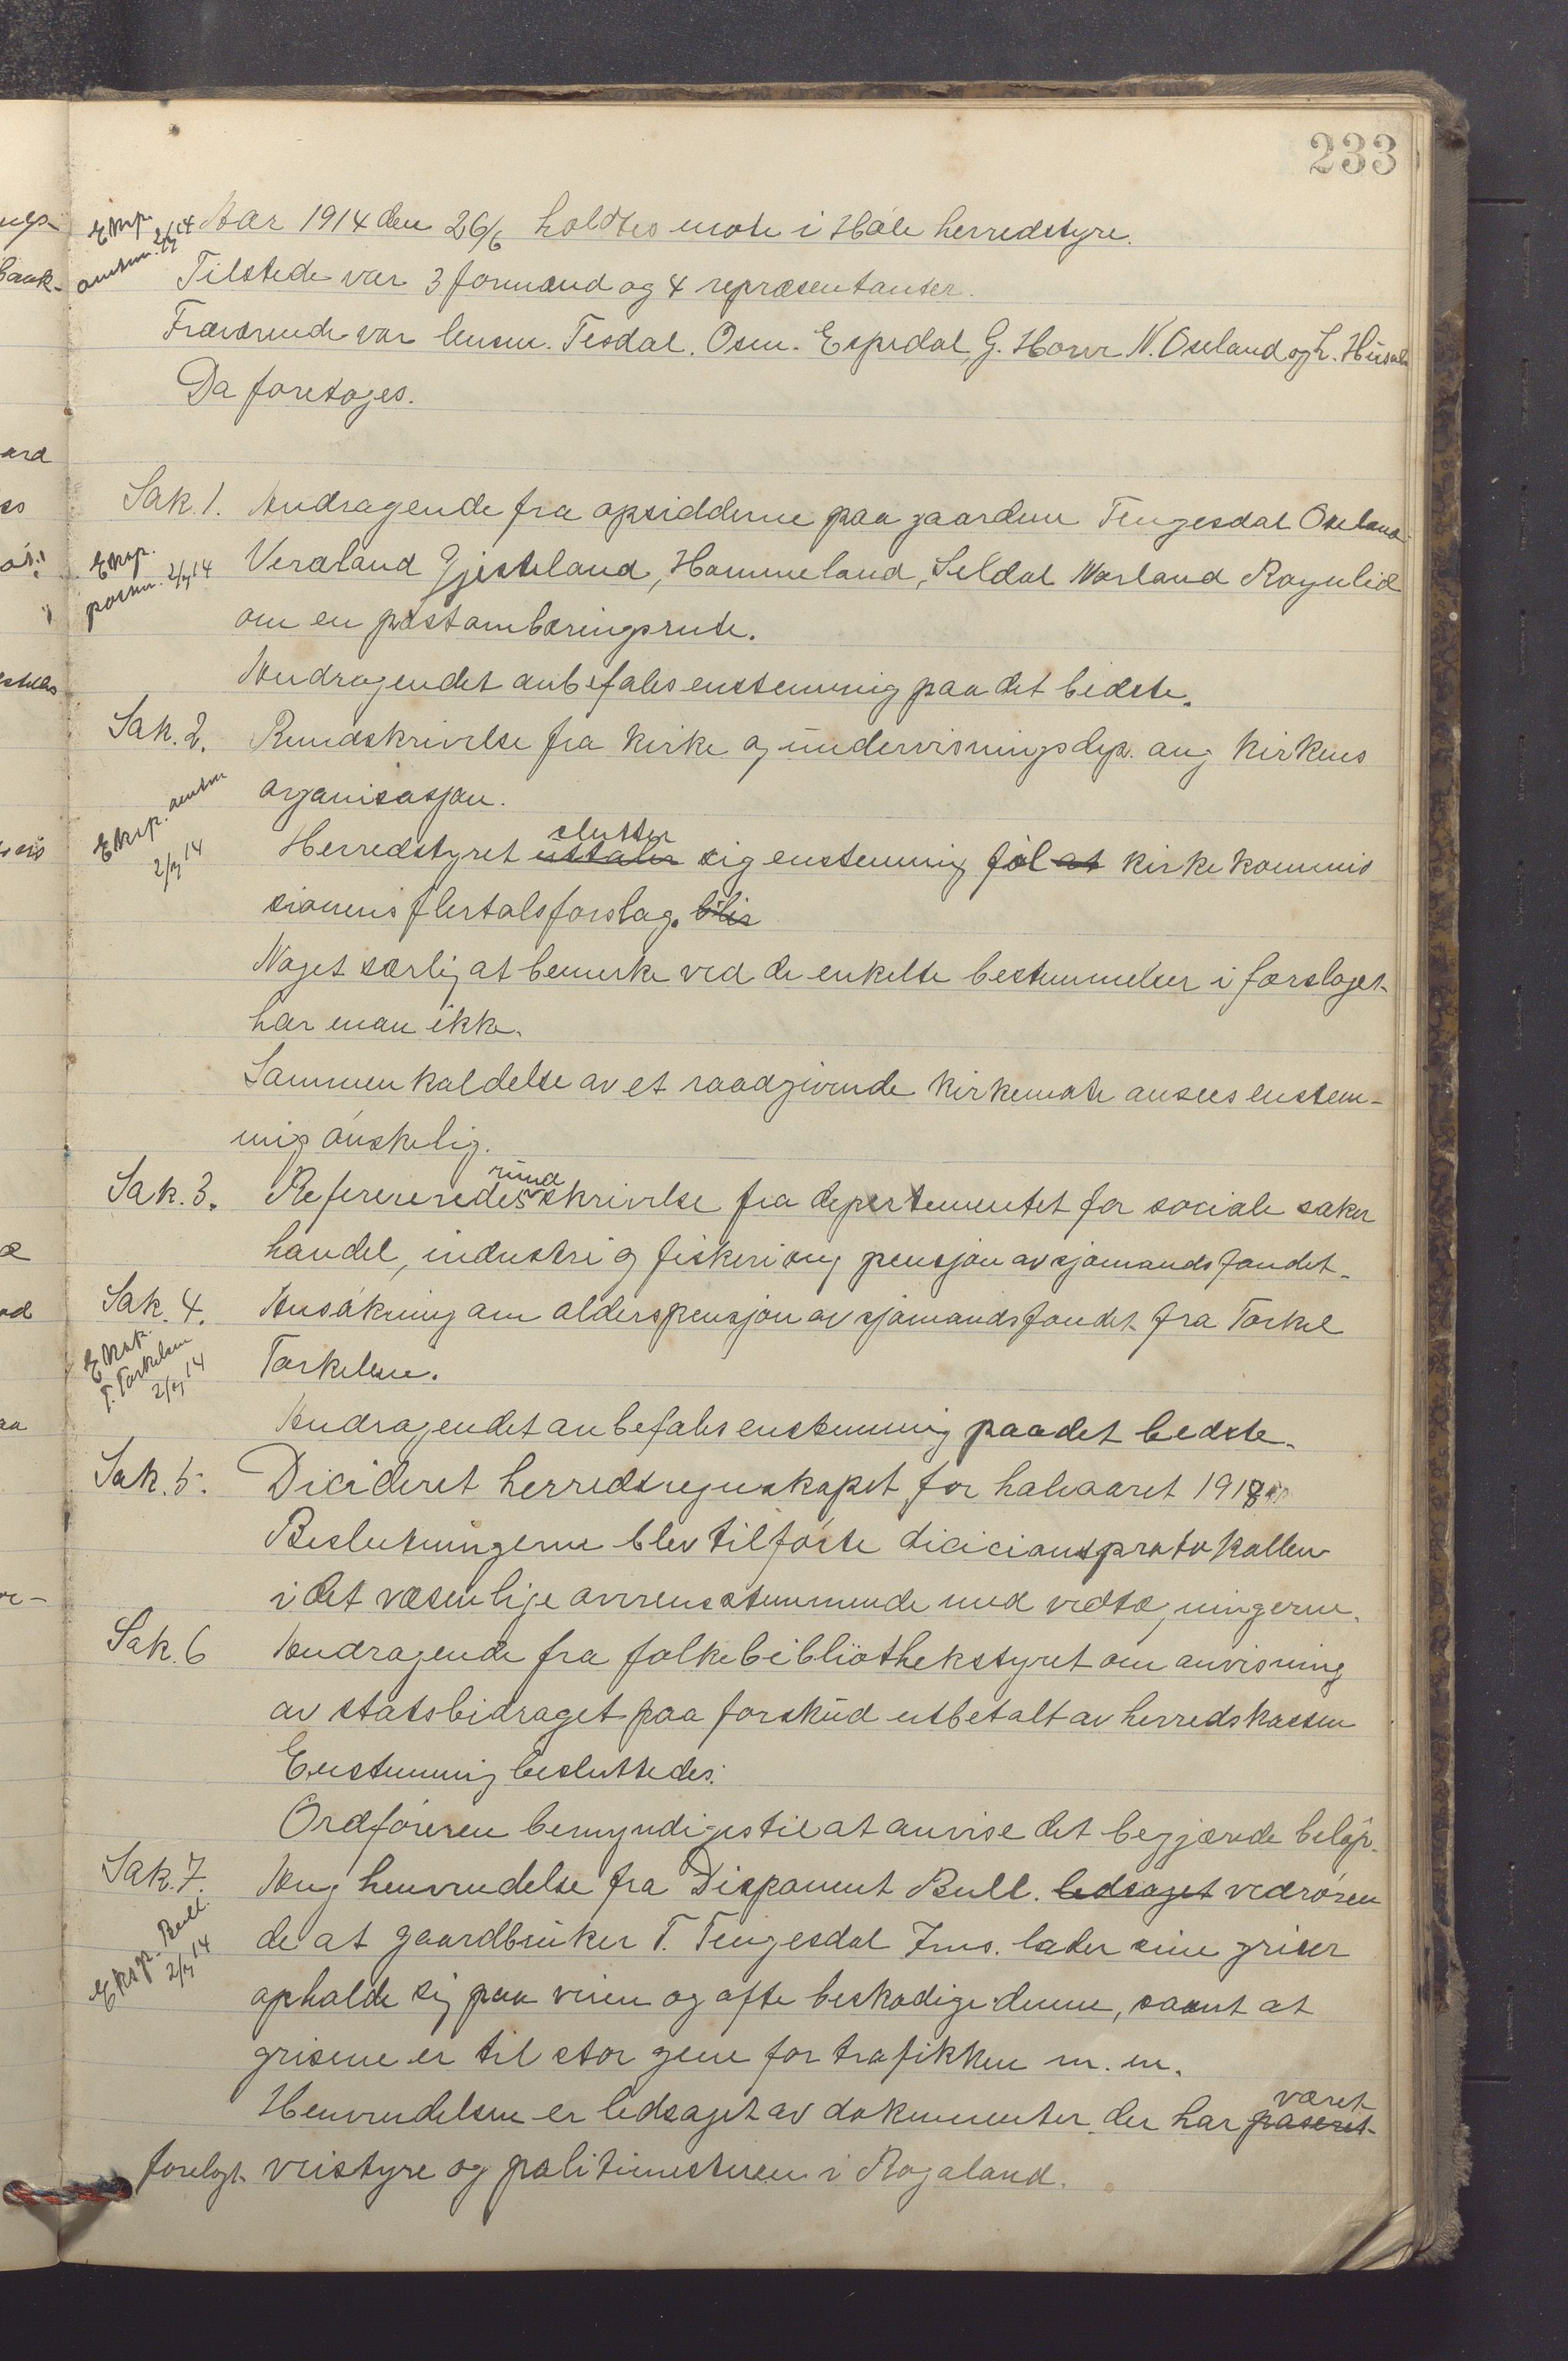 233
Eksp.
amtm. 2/7 14
Aar 1914 den 26/6 holdtes møte i Høle herredstyre.
Tilstede var 3 formænd og 4 repræsentanter.
Fraværende var lensm. Tesdal. Osm. Espedal, G. Horve N. Oseland og L.
Da foretoges.
Sak. 1. Andragende fra opsidderne paa gaardene Tengesdal Oseland
Eksp.
postm. 2/7 14
Veraland Gjesteland, Hommeland, Seldal Norland Rognlid
om en postombæringsrute.
Andragendet anbefales enstemmig paa det bedste.
Sak. 2. Rundskrivelse fra kirke og undervisningsdep. ang kirkens
organisasjon.
Eksp. amtm
2/7 14
slutter
Herredstyret uttaler sig enstemmig føl at kirkekommis
sionens flertalsforslag. blir
Noget særlig at bemerke ved de enkelte bestemmelser i forslaget
har man ikke.
Sammenkaldelse av et raadgivende kirkemøte ansees enstem-
mig ønskelig.
rund
Sak. 3. Refereredes skrivelse fra departementet for sociale saker
handel, industri og fiskeri ang pensjon av sjømandsfondet.
Sak. 4. Ansøkning om alderspensjon av sjømandsfondet fra Torkel
Eksp.
T. Torkelsen
2/7 14
Torkelsen.
Andragendet anbefales enstemmig paa det bedste.
Sak. 5. Dicideret herredsregnskapet for halvaaret 191
Beslutningerne blev tilførte dicicionsprotokollen
i det væsenlige overensstemmende med vedtægningerne.
Sak. 6 Andragende fra folkebibliothekstyret om anvisning
av statsbidraget paa forskud utbetalt av herredskassen
Enstemmig besluttedes:
Ordføreren bemyndiges til at anvise det begjærede beløp.
Sak. 7. Ang henvendelse fra Disponent Bull. ledsaget vedrøren
Eksp. Bull.
2/7 14
de at gaardbruker T. Tengesdal Ims. lader sine griser
opholde sig paa veien og ofte beskadige denne, samt at
grisene er til stor gene for trafikken m. m.
været
Henvendelsen er ledsaget av dokumenter der har paseret
forelagt veistyre og politimesteren i Rogaland.